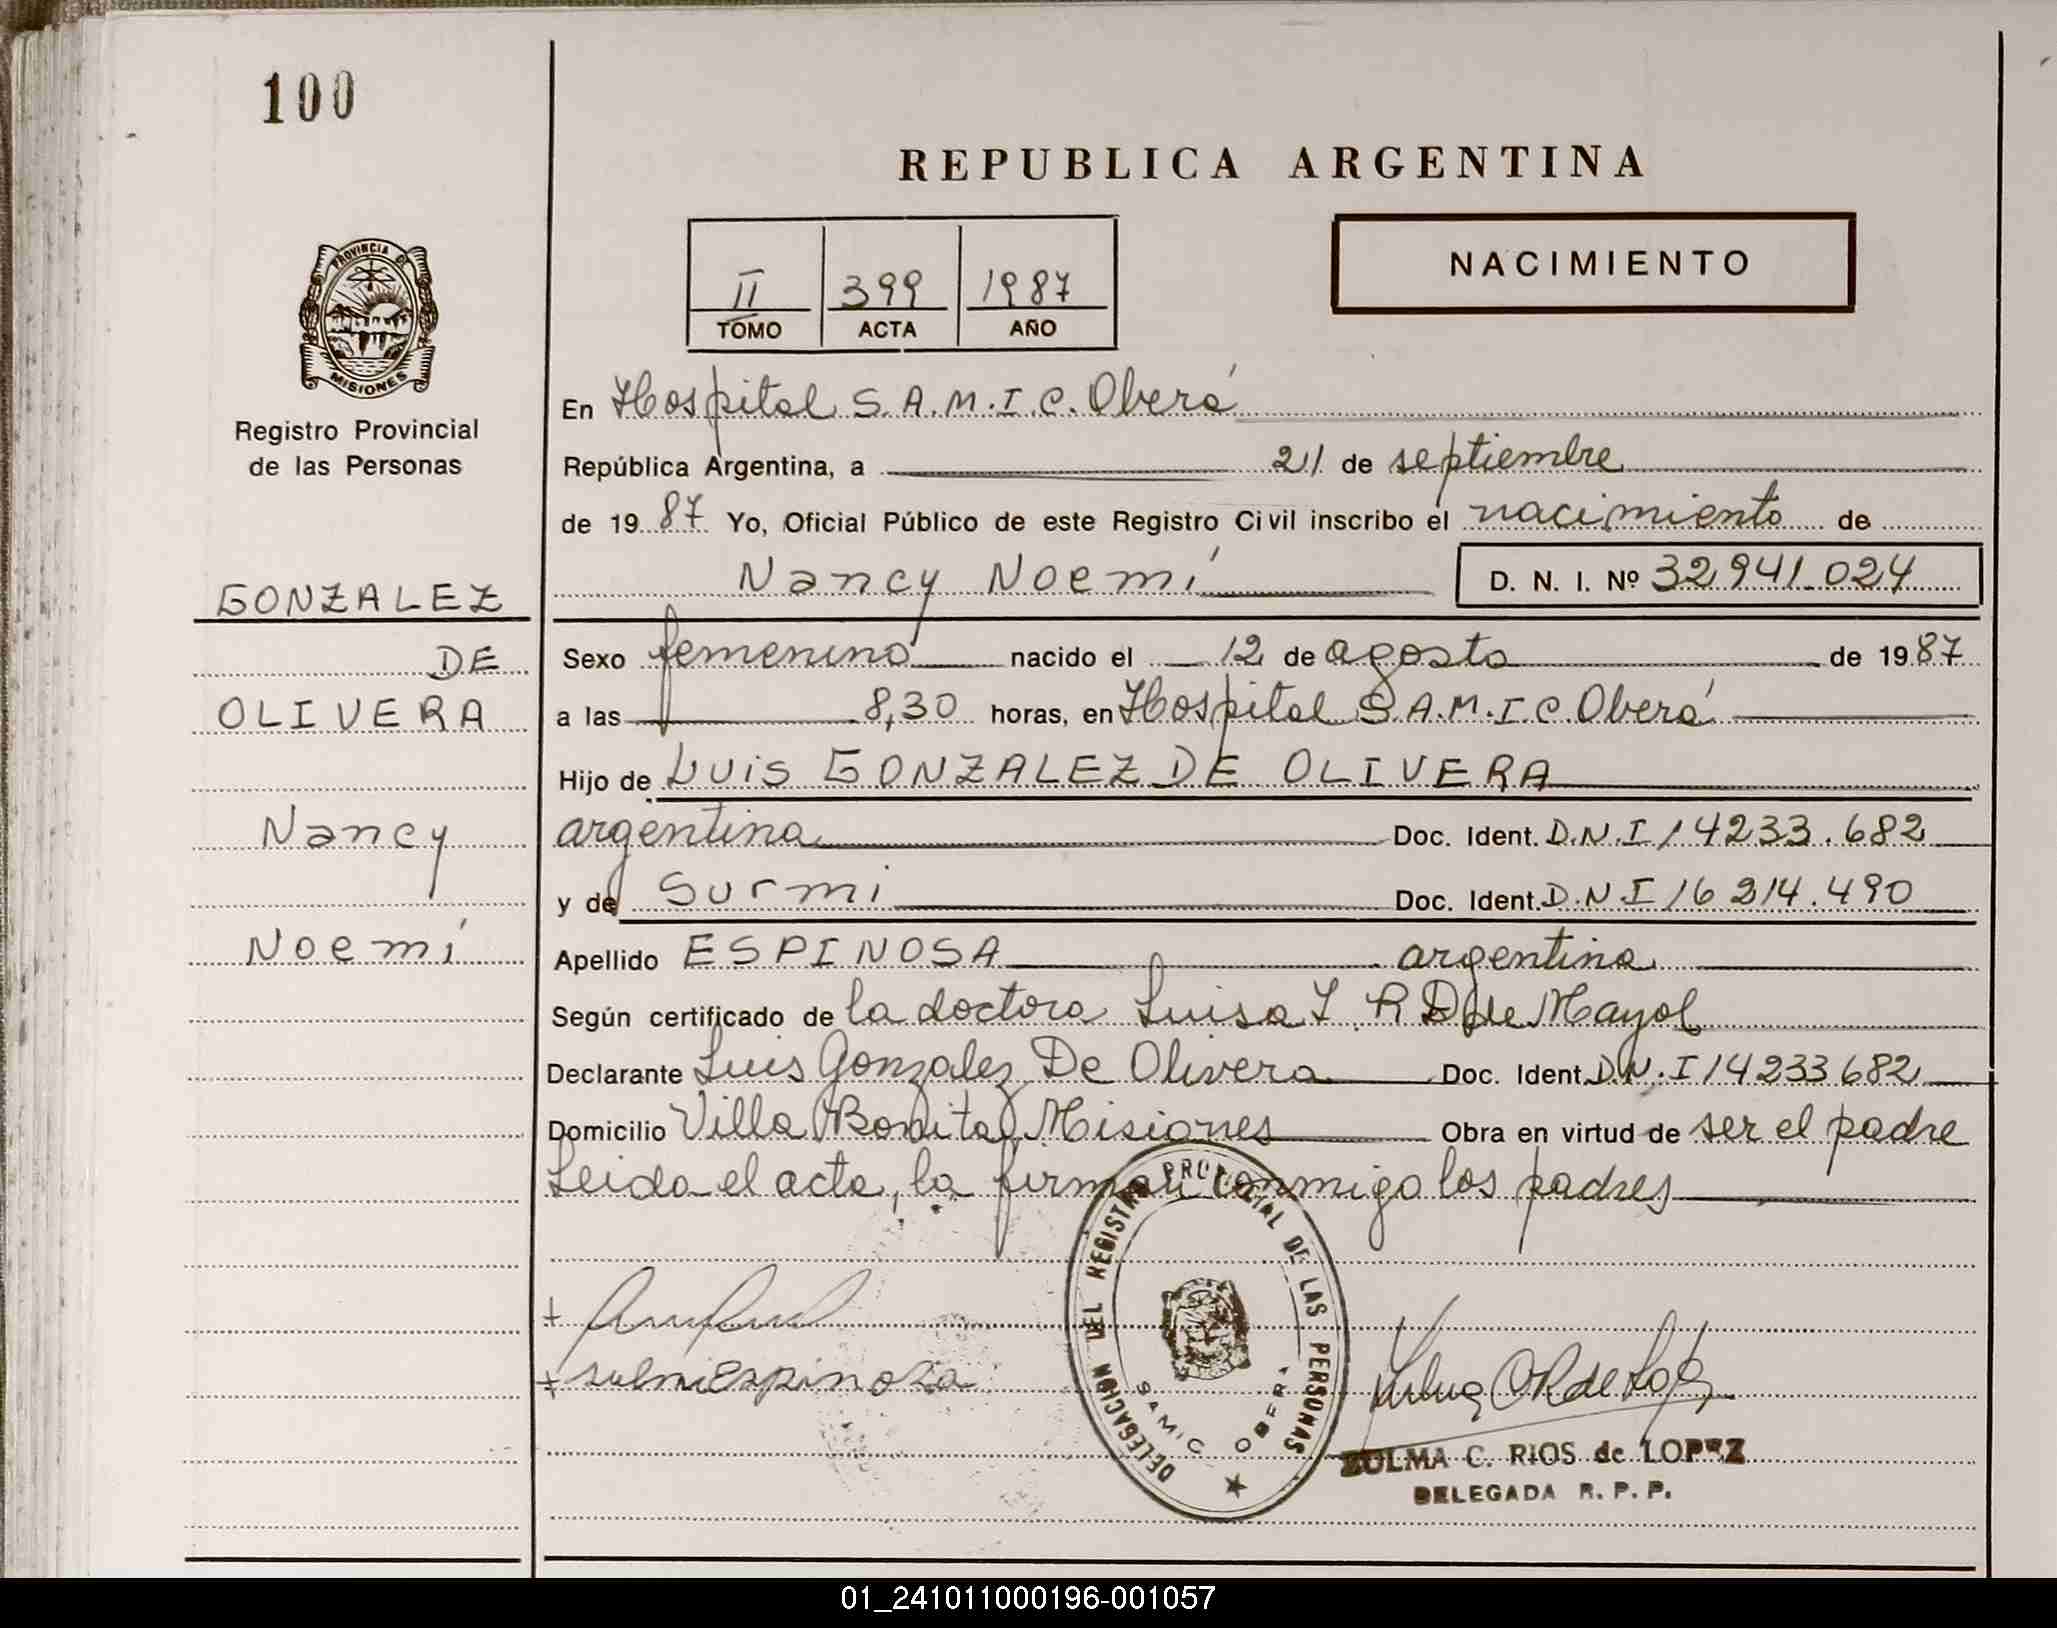 100
REPUBLICA ARGENTINA
PROVINCIA D
MISIONES
Registro Provincial
de las Personas
GONZALEZ
DE
OLIVERA
Nancy
Noemí
II 399 1987
TOMO ACTA AÑO
NACIMIENTO
En Hospital S.A.M.I.C. Oberá
República Argentina, a 21 de septiembre
de 1987 Yo, Oficial Público de este Registro Civil inscribo el nacimiento de
Nancy Noemí D. N. I. Nº 32.941.024
Sexo femenino nacido el 12 de agosto de 1987
a las 8,30 horas, en Hospital S.A.M.I.C. Oberá
Hijo de Luis GONZALEZ DE OLIVERA
argentina Doc. Ident. D.N.I 14233.682
y de Surmi Doc. Ident. D.N.I 16 214.490
Apellido ESPINOSA argentina
Según certificado de la doctora Luisa R D de Mayol
Declarante Luis Gonzalez De Olivera Doc. Ident. D.N.I 14233682
Domicilio Villa Bonita Misiones Obra en virtud de ser el padre
Leida el acta, la firman conmigo los padres
DELEGACION DEL REGISTRO PROVINCIAL DE LAS PERSONAS
SAMIC OBERA
Espinosa
ZULMA C. RIOS de LOPEZ
DELEGADA R. P. P.
01_241011000196-001057